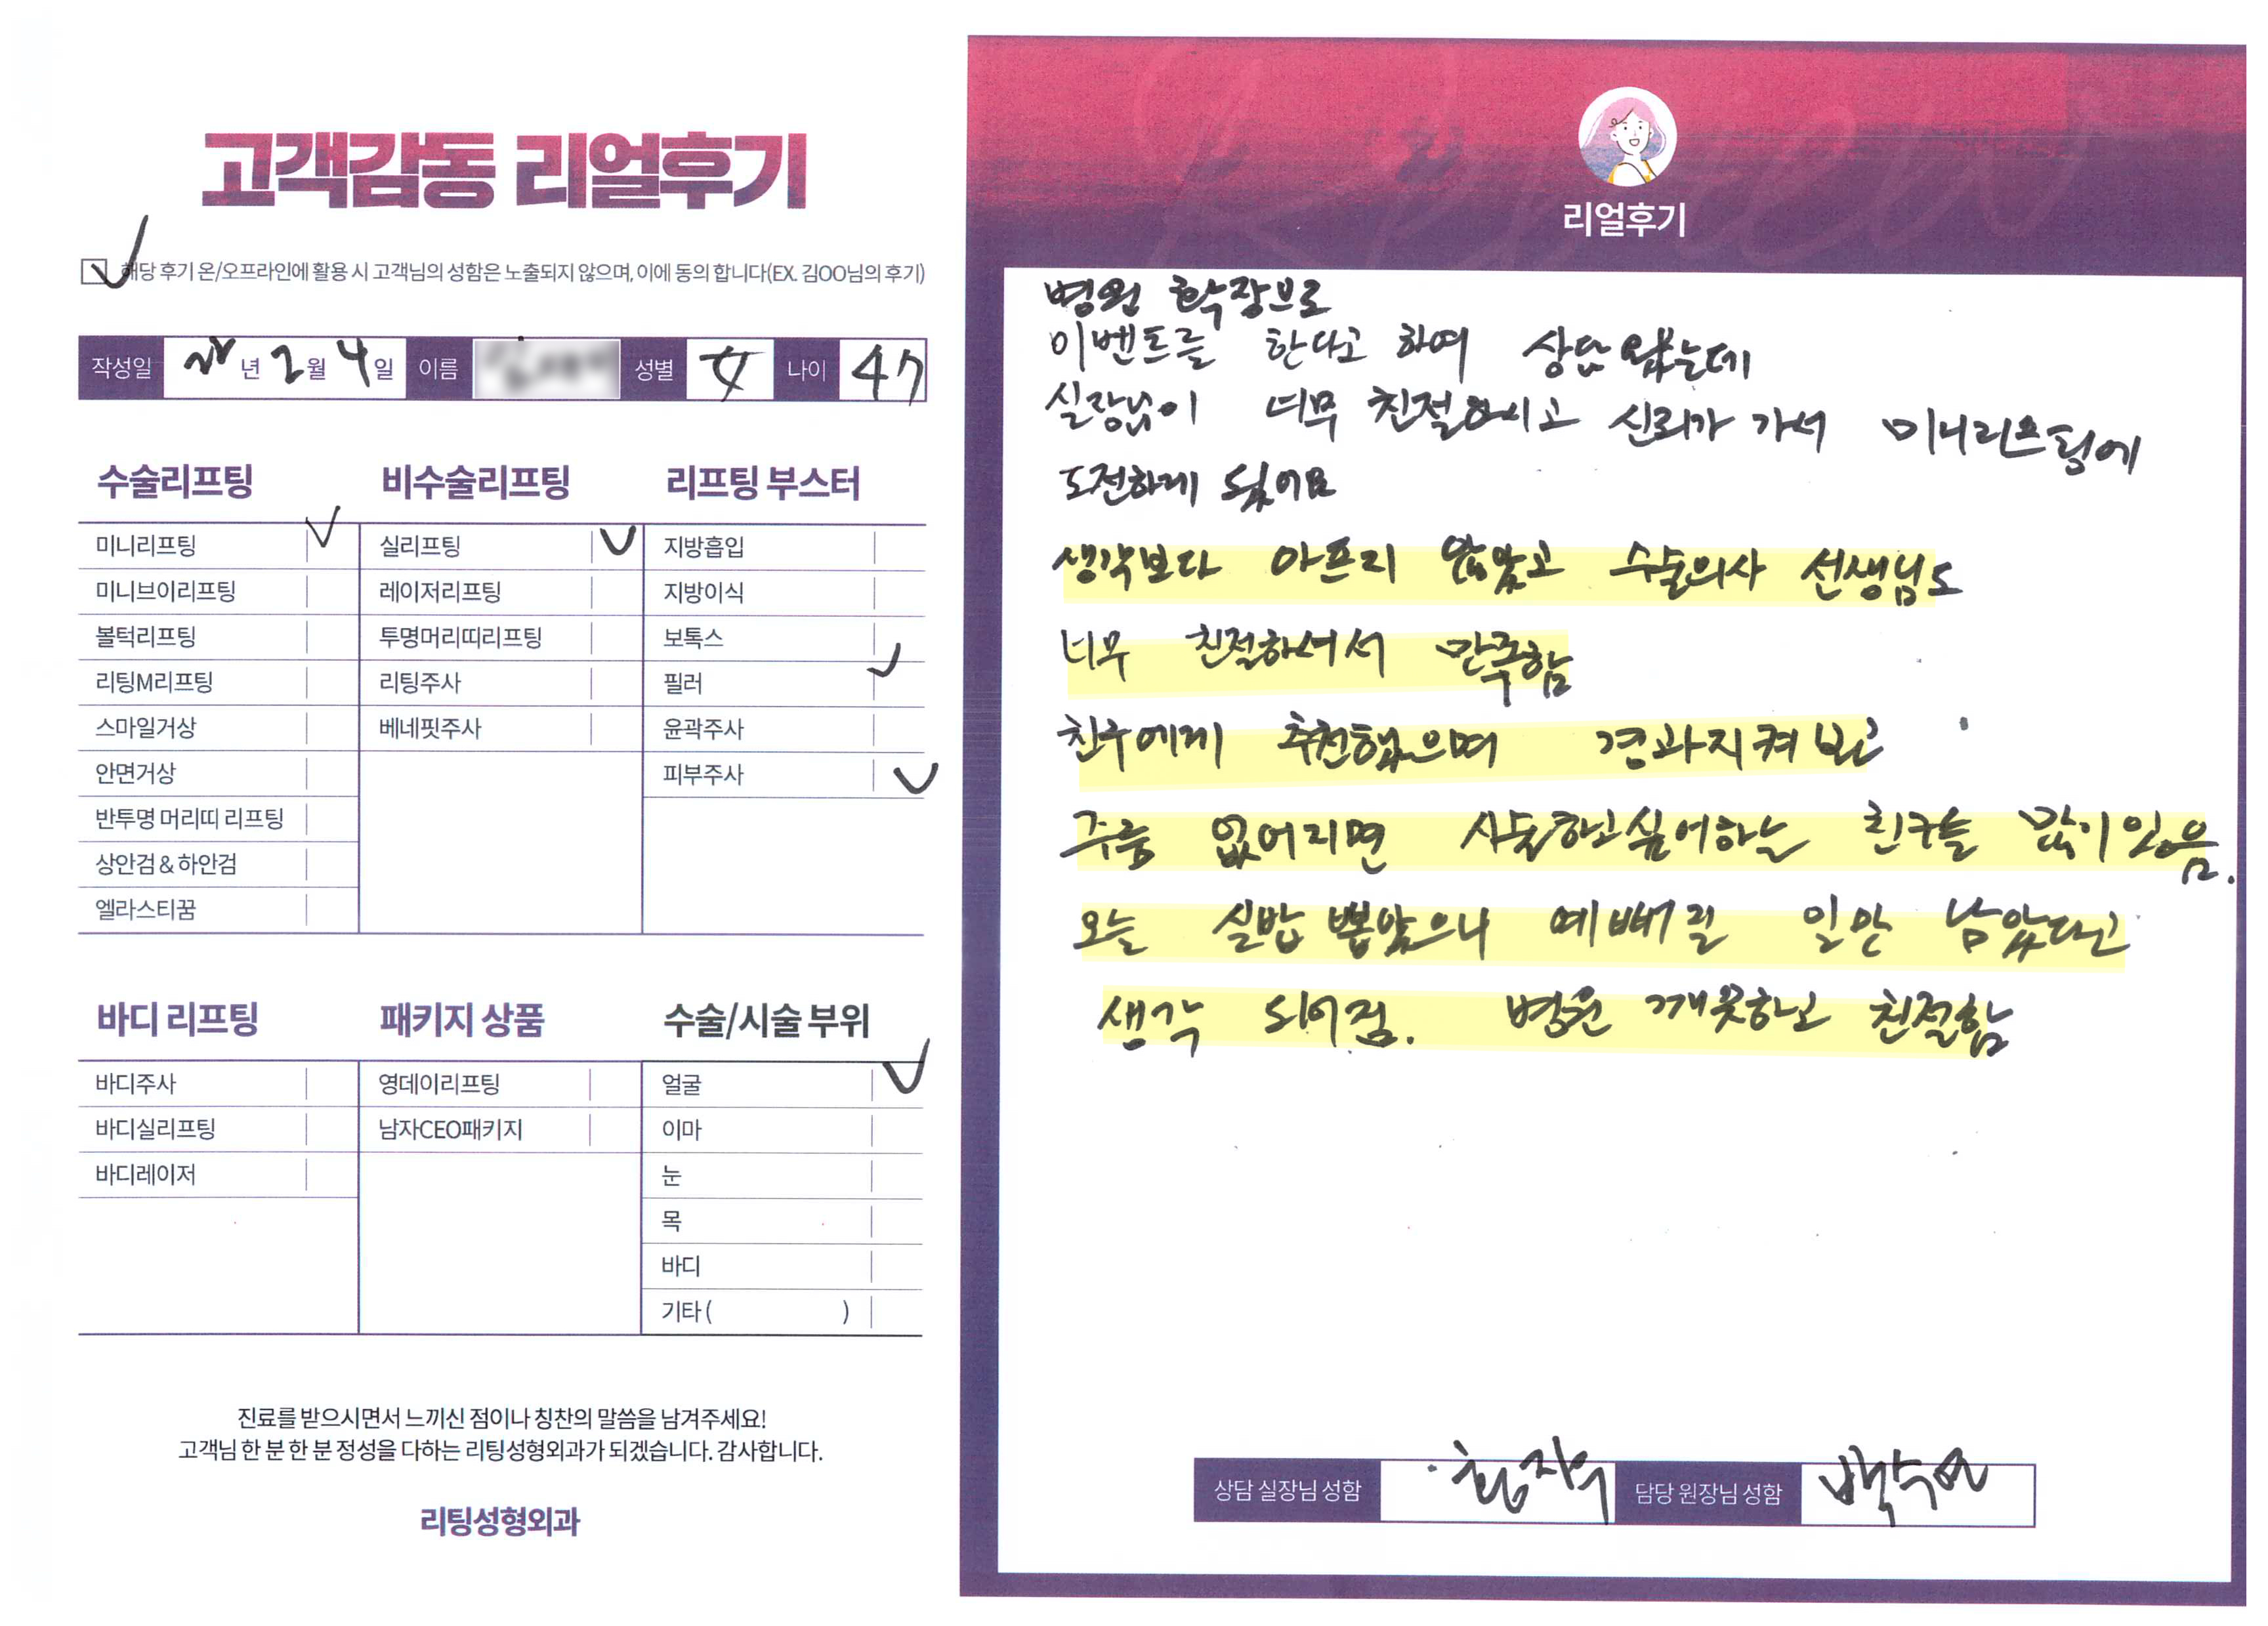 고객감동 리얼후기
해당 후기 온/오프라인에 활용 시 고객님의 성함은 노출되지 않으며, 이에 동의 합니다(EX. 김OO님의 후기)
작성일 년 2월 4일 이름 성별 女 나이 47
수술리프팅 비수술리프팅 리프팅 부스터
미니리프팅 실리프팅 지방흡입
미니브이리프팅 레이저리프팅 지방이식
볼턱리프팅 투명머리띠리프팅 보톡스
리팅M리프팅 리팅주사 필러
스마일거상 베네핏주사 윤곽주사
안면거상 피부주사
반투명 머리띠 리프팅
상안검 & 하안검
엘라스티꿈
바디 리프팅 패키지 상품 수술/시술 부위
바디주사 영데이리프팅 얼굴
바디실리프팅 남자CEO패키지 이마
바디레이저 눈
목
바디
기타 ( )
진료를 받으시면서 느끼신 점이나 칭찬의 말씀을 남겨주세요!
고객님 한 분 한 분 정성을 다하는 리팅성형외과가 되겠습니다. 감사합니다.
리팅성형외과
Review
리얼후기
병원 확장으로
이벤트를 한다고 하여 상담 왔는데
실장님이 너무 친절하시고 신뢰가 가서 미니리프팅에
도전하게 됬어요
생각보다 아프지 않았고 수술의사 선생님도
너무 친절하셔서 만족함
친구에게 추천했으며 경과지켜 보고
주름 없어지면 시술하고싶어하는 친구들 많이 있음.
오늘 실밥 뽑았으니 예뻐질 일만 남았다고
생각 되어짐. 병원 깨끗하고 친절함
상담 실장님 성함 담당 원장님 성함